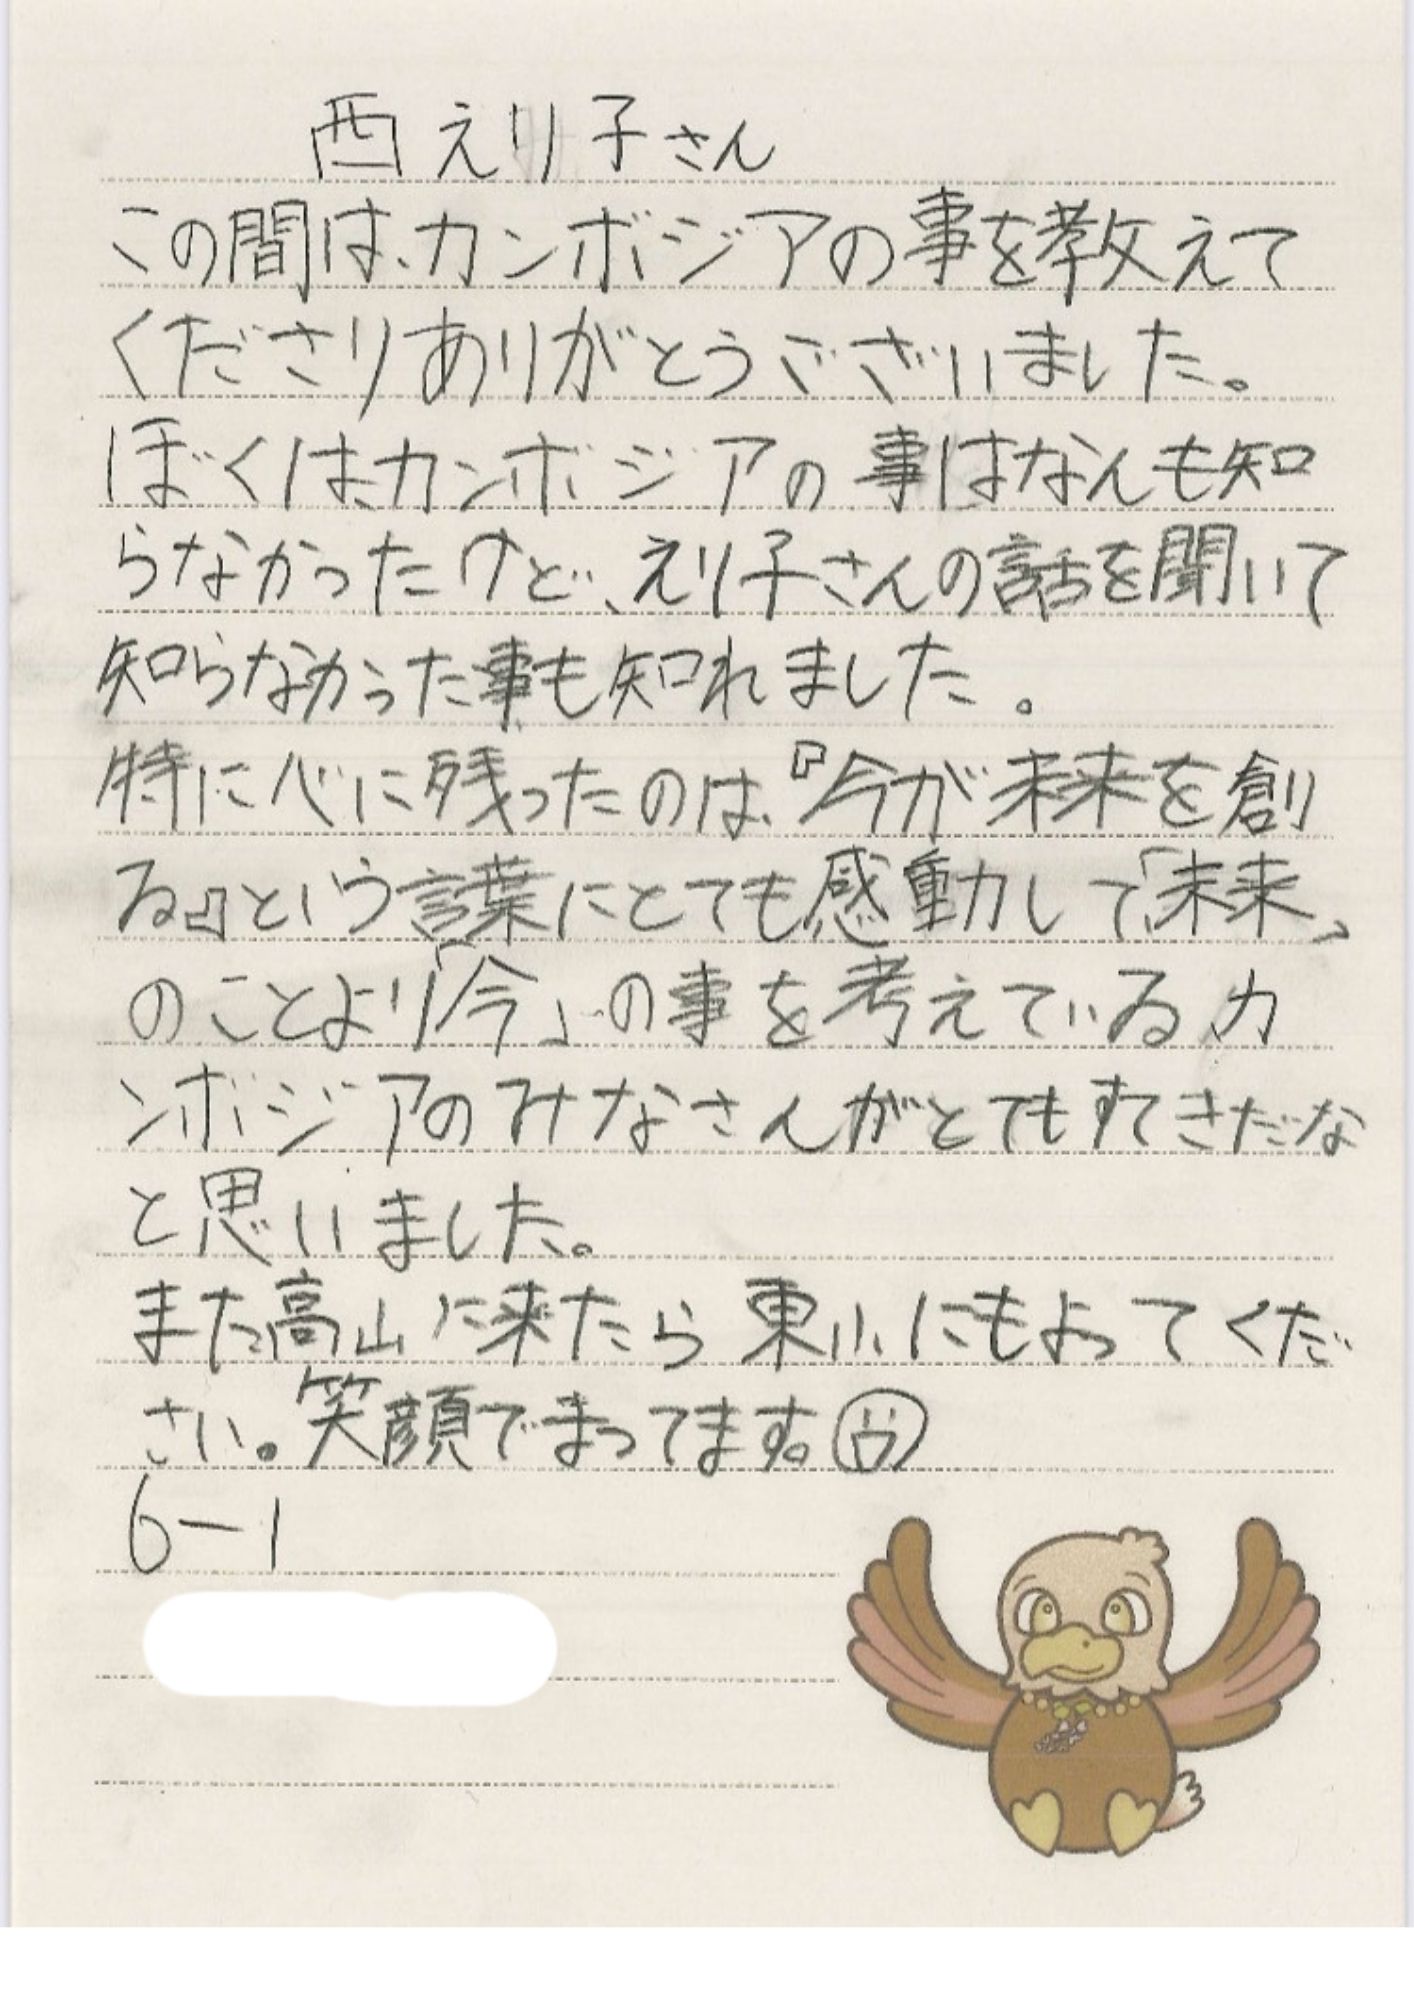 西えり子さん
この間は、カンボジアの事を教えて
くださりありがとうございました。
ぼくは、カンボジアの事はなんも知
らなかったけど、えり子さんの話を聞いて
知らなかった事も知れました。
特に心に残ったのは、『今が未来を創
る』という言葉にとても感動して、「未来」
のことより「今」の事を考えているカ
ンボジアのみなさんがとてもすてきだな
と思いました。
また高山に来たら東小にもよってくだ
さい。笑顔でまってます。
6-1